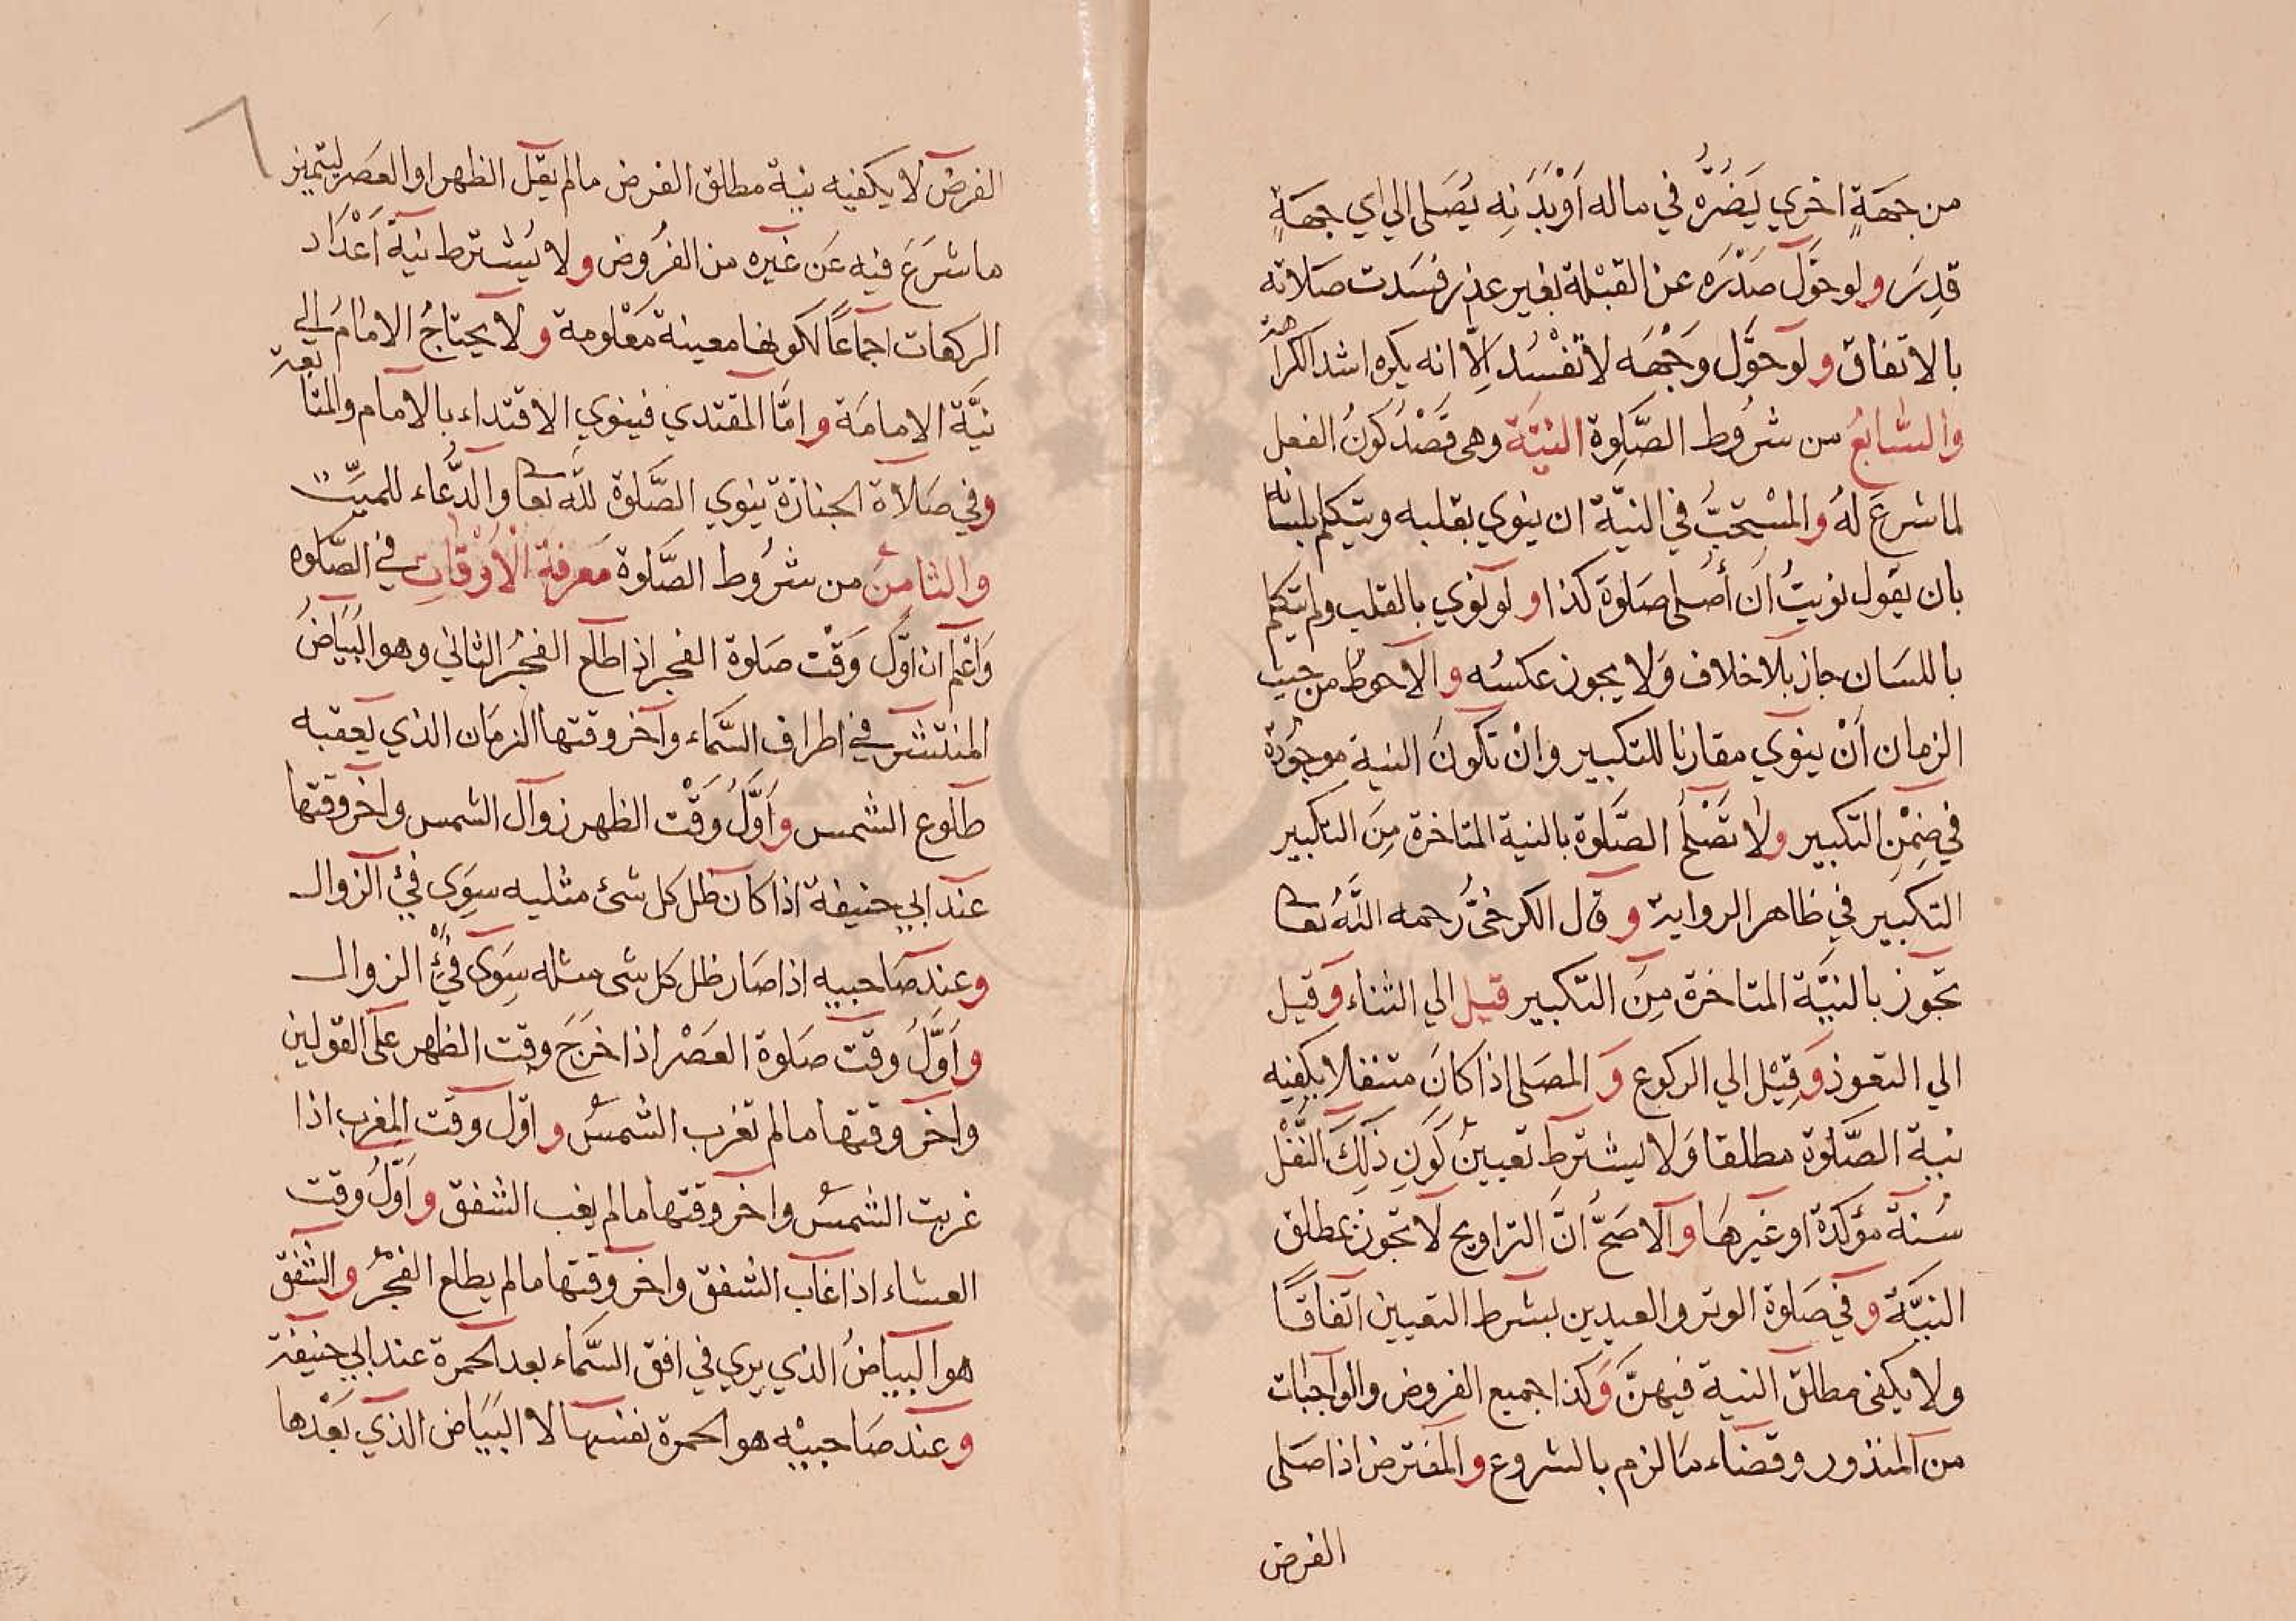 من جهَةٍ اخري يَضُرُّه في ماله اَوْ بَدَنِه يُصَلي الي اي جهَةٍ
قدِرَ ولو حَوَّل صَدْرَه عن القبْلة بغير عذر فسَدت صَلاته
بالاتفاق ولو حوَّل وَجْهَه لا تفْسُد اِلاّ انه يكره اشد الكراهة
والسَّابعُ من شرُوط الصَّلوة النيَّة وهى قصْدُ كونُ الفعل
لما شرعَ لهُ والمسْتحبُّ في النيّة ان ينوي بقلبه ويتكلم بلسانه
بان يقول نويتُ ان أصلي صَلوة كذا ولو نوي بالقلب ولم يتكلم
باللسَان جاز بلا خلاف وَلا يجوز عكسُه والاحوط من حيث
الزمان اَنْ ينوي مقارنا للتكبير وانْ تكونَ النية موجُودَة
في ضِمْنِ التكبير ولا تصْلحُ الصَّلوة بالنية المتاخرة مِنَ التكبير
التكبير في ظاهر الرواية وقال الكرخىُّ رحمه اللَّهُ تعا
تجوز بالنيَّة المتاخرة مِنَ التكبير قيل الي الثناء وَقيل
الي التعوذ وَقِيْل الي الركوع وَالمصَلى اذا كانَ متنفلا يكفيه
نية الصَّلوة مطلقا وَلا يشترط تعيينُ كَونِ ذلِكَ النَّفْل
سُنة مؤكدة او غيرهَا والاصَحُّ انَّ التراويح لا تجوز بمطلق
النيَّة وفي صَلوة الوتر والعيدين يشرط التعيين اتفاقًا
ولا يكفى مطلق النية فيهنَّ وَكذا جميع الفروض والواجبات
من المنذور وقضاء مَا لزم بالشروع والمفترض اذا صَلى
الفرض
٦
الفرضَ لا يكفيه نية مطلق الفرض مالم يقل الظهر او العصَر ليتميز
ما شرَعَ فيه عَن غيره من الفرُوض ولا يُشترط نيةَ اَعْدَاد
الركعات اجماعًا لكونها معينة مَعْلومة ولا يحتاجُ الامامُ الي
نيَّة الامامَة وامَّا المقتدي فينوي الاقتداء بالامام والمتابعة
وفي صَلاة الجنازة ينوي الصَّلوة للّه تعا والدُّعاء للميِّت
والثامنُ من شرُوط الصَّلوة مَعرفة الْاَوْقاتِ في الصَّلوه
وَاعْلم ان اوَّل وَقْت صَلوة الفجر اذا طلع الفجرُ الثاني وهو البَيَاضُ
المنتشر في اطراف السَّماء وآخر وقتها الزمَان الذي يعقبه
طلوع الشمس واَوَّلُ وَقْت الظهر زوال الشمس واخر وقتها
عند ابي حنيفة اذا كان ظل كل شئ مثليه سِوَى فيْئ الزوال
وعند صَاحبيه اذا صَار ظل كل شى مثله سِوَى فيْئ الزوال
واَوَّلُ وقت صَلوة العَصْر اذا خرَجَ وقت الظهر على القولين
واخر وقتها مالم تغرب الشمسُ واوّل وقت المغرب اذا
غربت الشمسُ واخر وقتها مالم يغب الشفق واَوّلُ وقت
العشاء اذا غاب الشفق واخر وقتها مالم يطلع الفجْرُ والشفق
هو البياضُ الذي يري في افق السَّماء بعد الحمرة عند ابي حنيفة
وعند صَاحبيْه هو الحمرة نفسها لا البَيَاض الذي بَعْدها